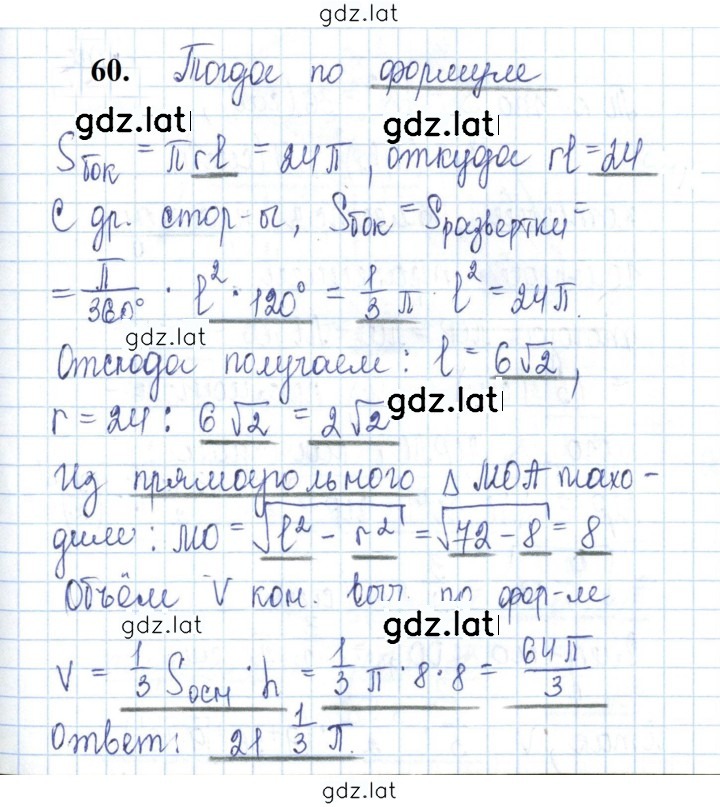 gdz.lat
60. Тогда по формуле
gdz.lat gdz.lat
Sбок = πrl = 24π, откуда rl = 24
С др. стор-ы, Sбок = Sразвертки =
= π/360° · l² · 120° = 1/3 π · l² = 24π.
gdz.lat
Отсюда получаем: l = 6√2,
gdz.lat
r = 24 : 6√2 = 2√2
Из прямоугольного △ MOA нахо-
дим: MO = √(l² - r²) = √(72 - 8) = 8
Объём V кон. выч. по фор-ле
gdz.lat gdz.lat
V = 1/3 Sосн · h = 1/3 π · 8 · 8 = 64π/3
Ответ: 21 1/3 π.
gdz.lat